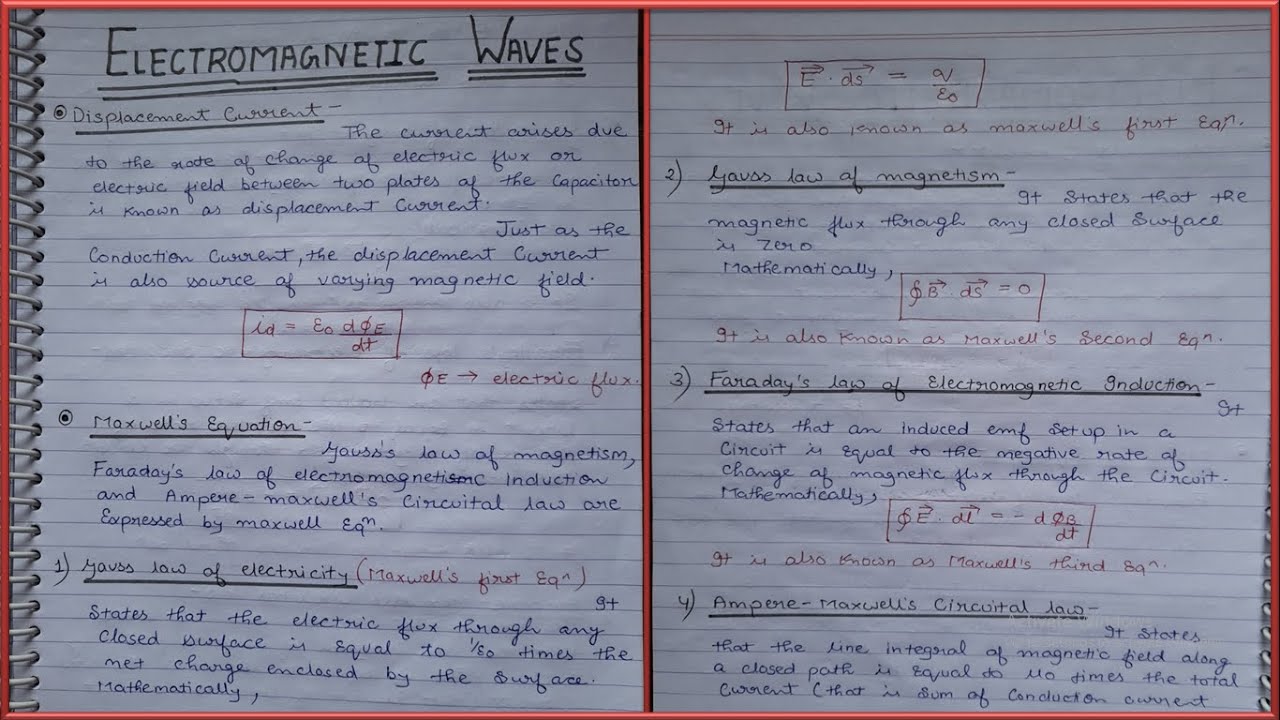 ELECTROMAGNETIC WAVES
Displacement Current -
The current arises due
to the rate of change of electric flux or
electric field between two plates of the Capacitor
is known as displacement Current.
Just as the
Conduction Current, the displacement Current
is also source of varying magnetic field.
id = ε0 dϕE/dt
ϕE → electric flux.
Maxwell's Equation -
Gauss's law of magnetism,
Faraday's law of electromagnetismc Induction
and Ampere-maxwell's Circuital law are
Expressed by maxwell Eqⁿ.
1) Gauss law of electricity (Maxwell's first Eqⁿ)
It
States that the electric flux through any
Closed surface is Equal to 1/ε0 times the
met charge enclosed by the Surface.
Mathematically,
E⃗ · ds⃗ = q/ε0
It is also known as maxwell's first Eqⁿ.
2) Gauss law of magnetism -
It States that the
magnetic flux through any closed Surface
is Zero
Mathematically,
∮B⃗ · ds⃗ = 0
It is also Known as Maxwell's Second Eqⁿ.
3) Faraday's law of Electromagnetic Induction -
It
States that an induced emf Set up in a
Circuit is Equal to the negative rate of
change of magnetic flux through the Circuit.
Mathematically,
∮E⃗ · dl⃗ = - dϕB/dt
It is also Known as Maxwell's third Eqⁿ.
4) Ampere-Maxwell's Circuital law -
It States
that the line integral of magnetic field along
a closed path is Equal to μ0 times the total
Current (that is Sum of Conduction current